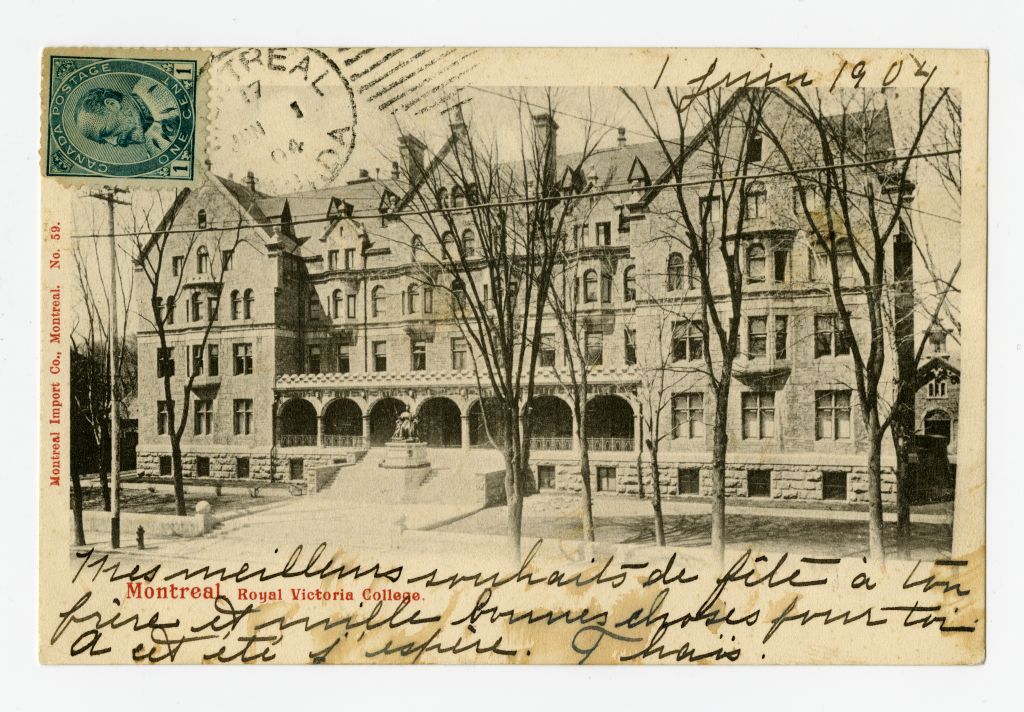 CANADA POSTAGE
ONE CENT
1 1
MONTREAL
17
JUN 1
04
CANADA
1 Juin 1904
Montreal Import Co., Montreal. No. 59.
Mes meilleurs souhaits de fête à ton
Montreal, Royal Victoria College.
frère et mille bonnes choses pour toi.
A cet été j'espère. Thaïs.